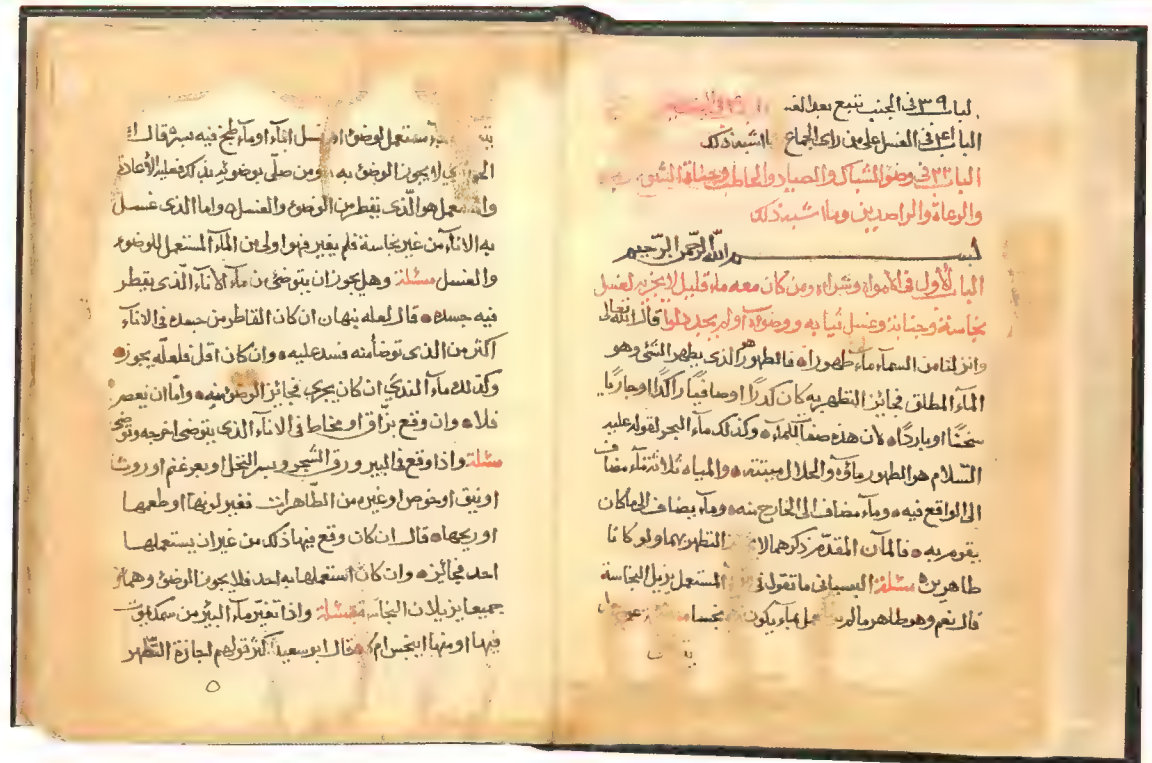 الباب ٣٩ في الجنب تتبع بعد الغسل
الباب ٤١ في الغسل على من رأى الجماع وما اشبه ذلك
الباب ٤٢ في وضوء الشباك والصياد والحاطب وجناة الشوع
والرعاة والراصدين وما اشبه ذلك
بسم الله الرحمن الرحيم
الباب الأول في الأمواه وشراءه ومن كان معه ماء قليل لا يجزيه لغسل
نجاسة وجنابة وغسل ثيابه ووضوءه او لم يجد دلوا قال الله تعالى
وانزلنا من السماء ماء طهورا فالطهور هو الذي يطهر الشئ وهو
الماء المطلق فجائز التطهر به كان كدرًا او صافيًا راكدًا او جاريًا
سخنًا او باردًا لان هذه صفة للماء وكذلك ماء البحر لقوله عليه
السلام هو الطهور ماؤه والحلال ميتته والمياه ثلاثة ماء مضاف
الى الواقع فيه وماء مضاف الى الخارج منه وماء يضاف الى ما كان
يقوم به فالمآن المقدم ذكرهما لا التطهر بهما ولو كانا
طاهرين مسئلة البسياني ما تقول في المستعمل يزيل النجاسة
قال نعم وهو طاهر ما لم يكون نجسا
ماء مستعمل لوضوء او غسل اناء او ماء طبخ فيه بسر قال ان
لا يجوز الوضوء به ومن صلى بوضوئه بذلك فعليه الاعادة
والمستعمل هو الذي يقطر من الوضوء والغسل واما الذي غسل
به الاناء من غير نجاسة فلم يغير فهو اولى من الماء المستعمل للوضوء
والغسل مسئلة وهل يجوز ان يتوضئ من ماء الاناء الذي يقطر
فيه جسده قال لعله نبهان ان كان القاطر من جسده في الاناء
اكثر من الذي توضأ منه فسد عليه وان كان اقل فلعله يجوز
وكذلك ماء الندى ان كان يجري فجائز الوضوء منه واما ان يعصر
فلا وان وقع بزاق او مخاط في الاناء الذي يتوضى اخرجه وتوضئ
مسئلة واذا وقع في البير ورق الشجر وبسر النخل او بعر غنم او روث
او نبق او خوص او غيره من الطاهرات فغير لونها او طعمها
او ريحها قال ان كان وقع فيها ذلك من غير ان يستعملها
احد فجائز وان كان استعملها به احد فلا يجوز الوضوء وهما
جميعا يزيلان النجاسة مسئلة واذا تغير ماء البئر من سمك
فيها او منها اينجس ام قال ابو سعيد اكثر قولهم اجازة التطهر